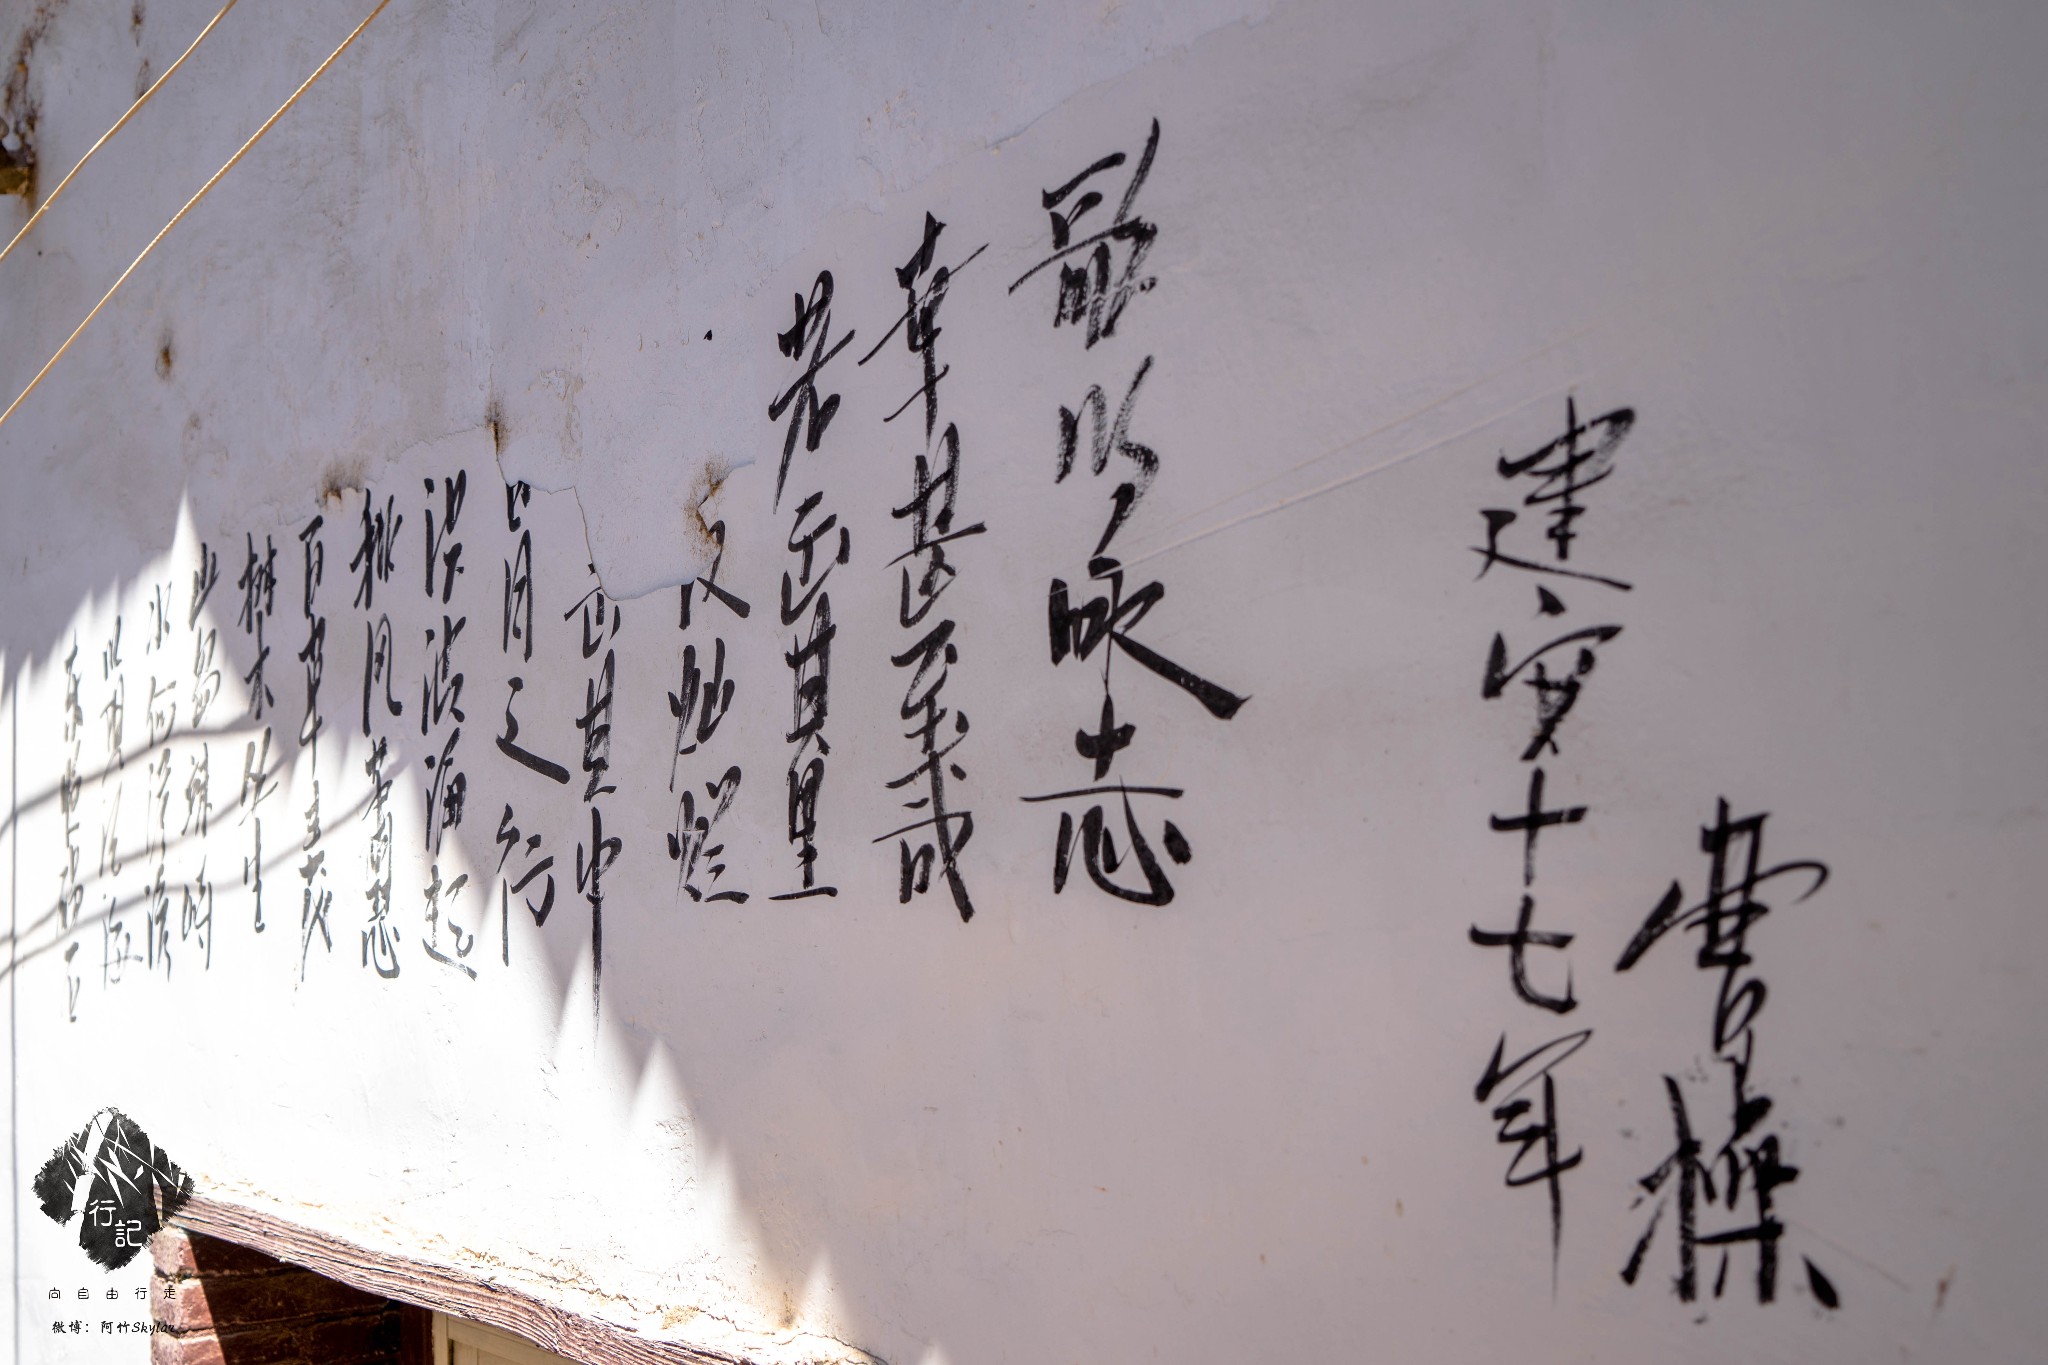 东临碣石
以观沧海
水何澹澹
山岛竦峙
树木丛生
百草丰茂
秋风萧瑟
洪波涌起
日月之行
出其中
汉灿烂
若出其里
幸甚至哉
歌以咏志
建安十七年
曹操
行記
向自由行走
微博：阿竹Skylar